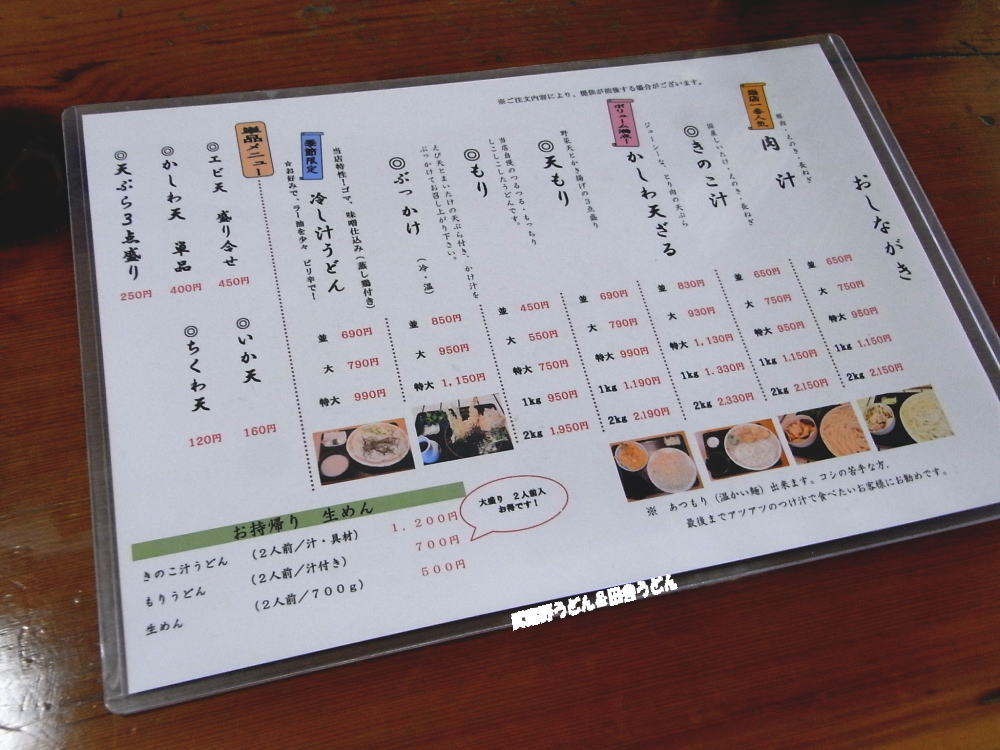 おしながき
※ご注文内容により、提供が前後する場合がございます。
当店一番人気
肉 汁
豚肉・えのき・長ねぎ
並 650円
大 750円
特大 950円
1kg 1,150円
2kg 2,150円
◎きのこ汁
国産しいたけ・えのき・長ねぎ
並 650円
大 750円
特大 950円
1kg 1,150円
2kg 2,150円
ボリューム満点!
かしわ天ざる
ジューシーな、とり肉の天ぷら
並 830円
大 930円
特大 1,130円
1kg 1,330円
2kg 2,330円
◎天もり
野菜天とかき揚げの3点盛り
並 690円
大 790円
特大 990円
1kg 1,190円
2kg 2,190円
◎もり
当店自慢のつるつる・もっちり
しこしこしたうどんです。
並 450円
大 550円
特大 750円
1kg 950円
2kg 1,950円
◎ぶっかけ (冷・温)
えび天とまいたけの天ぷら付き、かけ汁を
ぶっかけてお召し上がり下さい。
並 850円
大 950円
特大 1,150円
季節限定
冷し汁うどん
当店特性!ゴマ、味噌仕込み(蒸し鶏付き)
☆お好みで、ラー油を少々 ピリ辛で!
並 690円
大 790円
特大 990円
単品メニュー
◎エビ天 盛り合せ
450円
◎かしわ天 単品
400円
◎天ぷら3点盛り
250円
◎いか天
160円
◎ちくわ天
120円
お持帰り 生めん
きのこ汁うどん (2人前/汁・具材) 1,200円
もりうどん (2人前/汁付き) 700円
生めん (2人前/700g) 500円
大盛り 2人前入
お得です!
※ あつもり(温かい麺)出来ます。コシの苦手な方、
最後までアツアツのつけ汁で食べたいお客様にお勧めです。
武蔵野うどん&田舎うどん